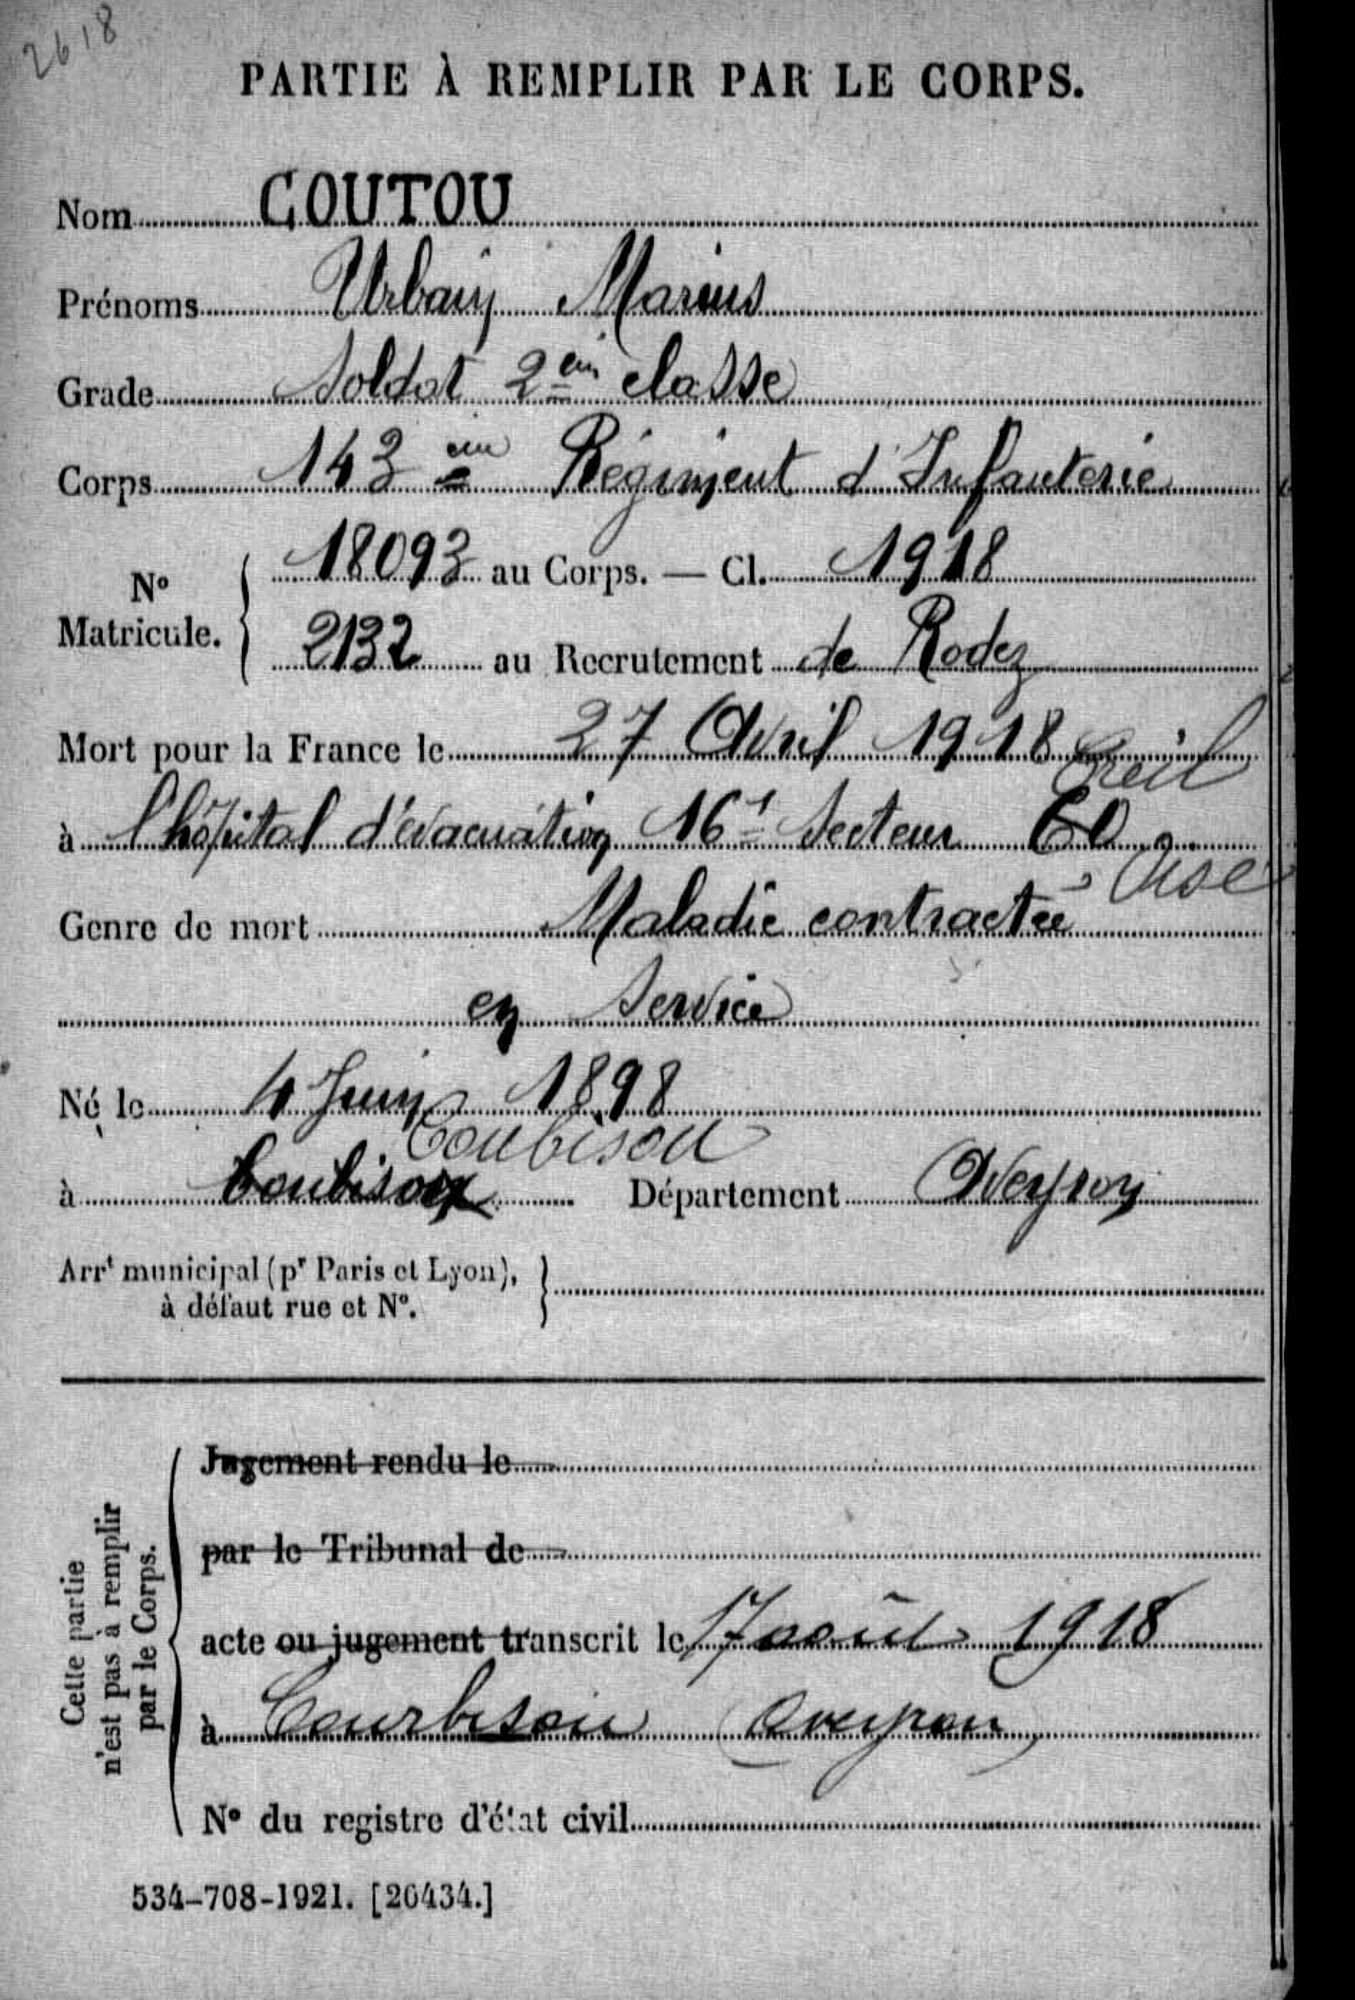 2618
PARTIE À REMPLIR PAR LE CORPS.
Nom COUTOU
Prénoms Urbain Marius
Grade Soldat 2ème classe
Corps 143ème Régiment d'Infanterie
N° Matricule. 18093 au Corps. — Cl. 1918
2132 au Recrutement de Rodez
Mort pour la France le 27 Avril 1918 Creil
à l'hôpital d'évacuation 16 1 Secteur 60
Oise
Genre de mort Maladie contractée
en Service
Né le 4 Juin 1898
Coubisou
à Coubisou Département Aveyron
Arrt municipal (pr Paris et Lyon),
à défaut rue et N°.
Cette partie
n'est pas à remplir
par le Corps.
Jugement rendu le
par le Tribunal de
acte ou jugement transcrit le 17 août 1918
à Courbisou (Aveyron)
N° du registre d'état civil
534-708-1921. [26434.]